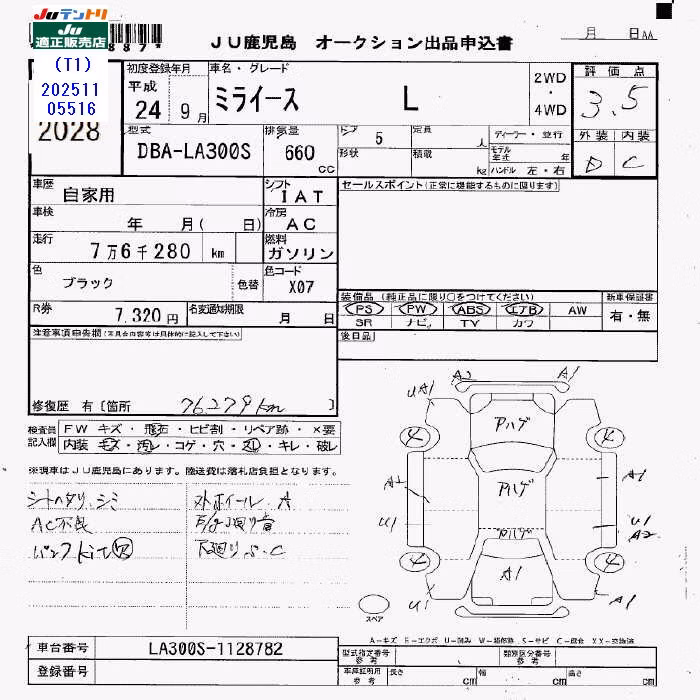 JUテントリ
JU
適正販売店
887*
(T1)
202511
05516
2028
JU鹿児島 オークション出品申込書
月 日AA
初度登録年月 車名・グレード 2WD・4WD 評価点
平成
24 9月 ミライース L 3.5
型式 排気量 ドア 定員 ディーラー・並行 外装 内装
DBA-LA300S 660 CC 5 人
形状 積載 kg モデル年式 年 ハンドル 左・右 D C
車歴 自家用 シフト IAT セールスポイント(正常に堪能するものに限ります)
車検 年 月( 日) 冷房 AC
走行 7万6千280 km 燃料 ガソリン
色 ブラック 色替 色コード X07
装備品(純正品に限り○をつけてください) 新車保証書
R券 7,320円 名変通知期限 月 日
PS PW ABS エアB AW 有・無
SR ナビ TV カワ
注意事項申告欄(不具合内容等は具体的に記入して下さい)
後日品
修復歴 有〔箇所 76279km 〕
検査員記入欄 FW キズ・飛石・ヒビ割・リペア跡・×要
内装 キズ・汚レ・コゲ・穴・スレ・キレ・破レ
※現車はJU鹿児島にあります。陸送費は落札店負担となります。
シートヘタリ、シミ
AC不良
パンクKit
外ホイール 大
下廻り S.C
A2 A1
UA1
アハゲ
4 4
A2 アハゲ A1
ハゲ
U1 U1
A2
4 4
A1
U1 A1
スペア
A-キズ E-エクボ U-凹み W-補修跡 S-サビ C-腐食 XX-交換済
車台番号 LA300S-1128782
登録番号
型式指定番号 参考 類別区分番号 参考
車庫証明用 参考 長さ cm 幅 cm 高さ cm